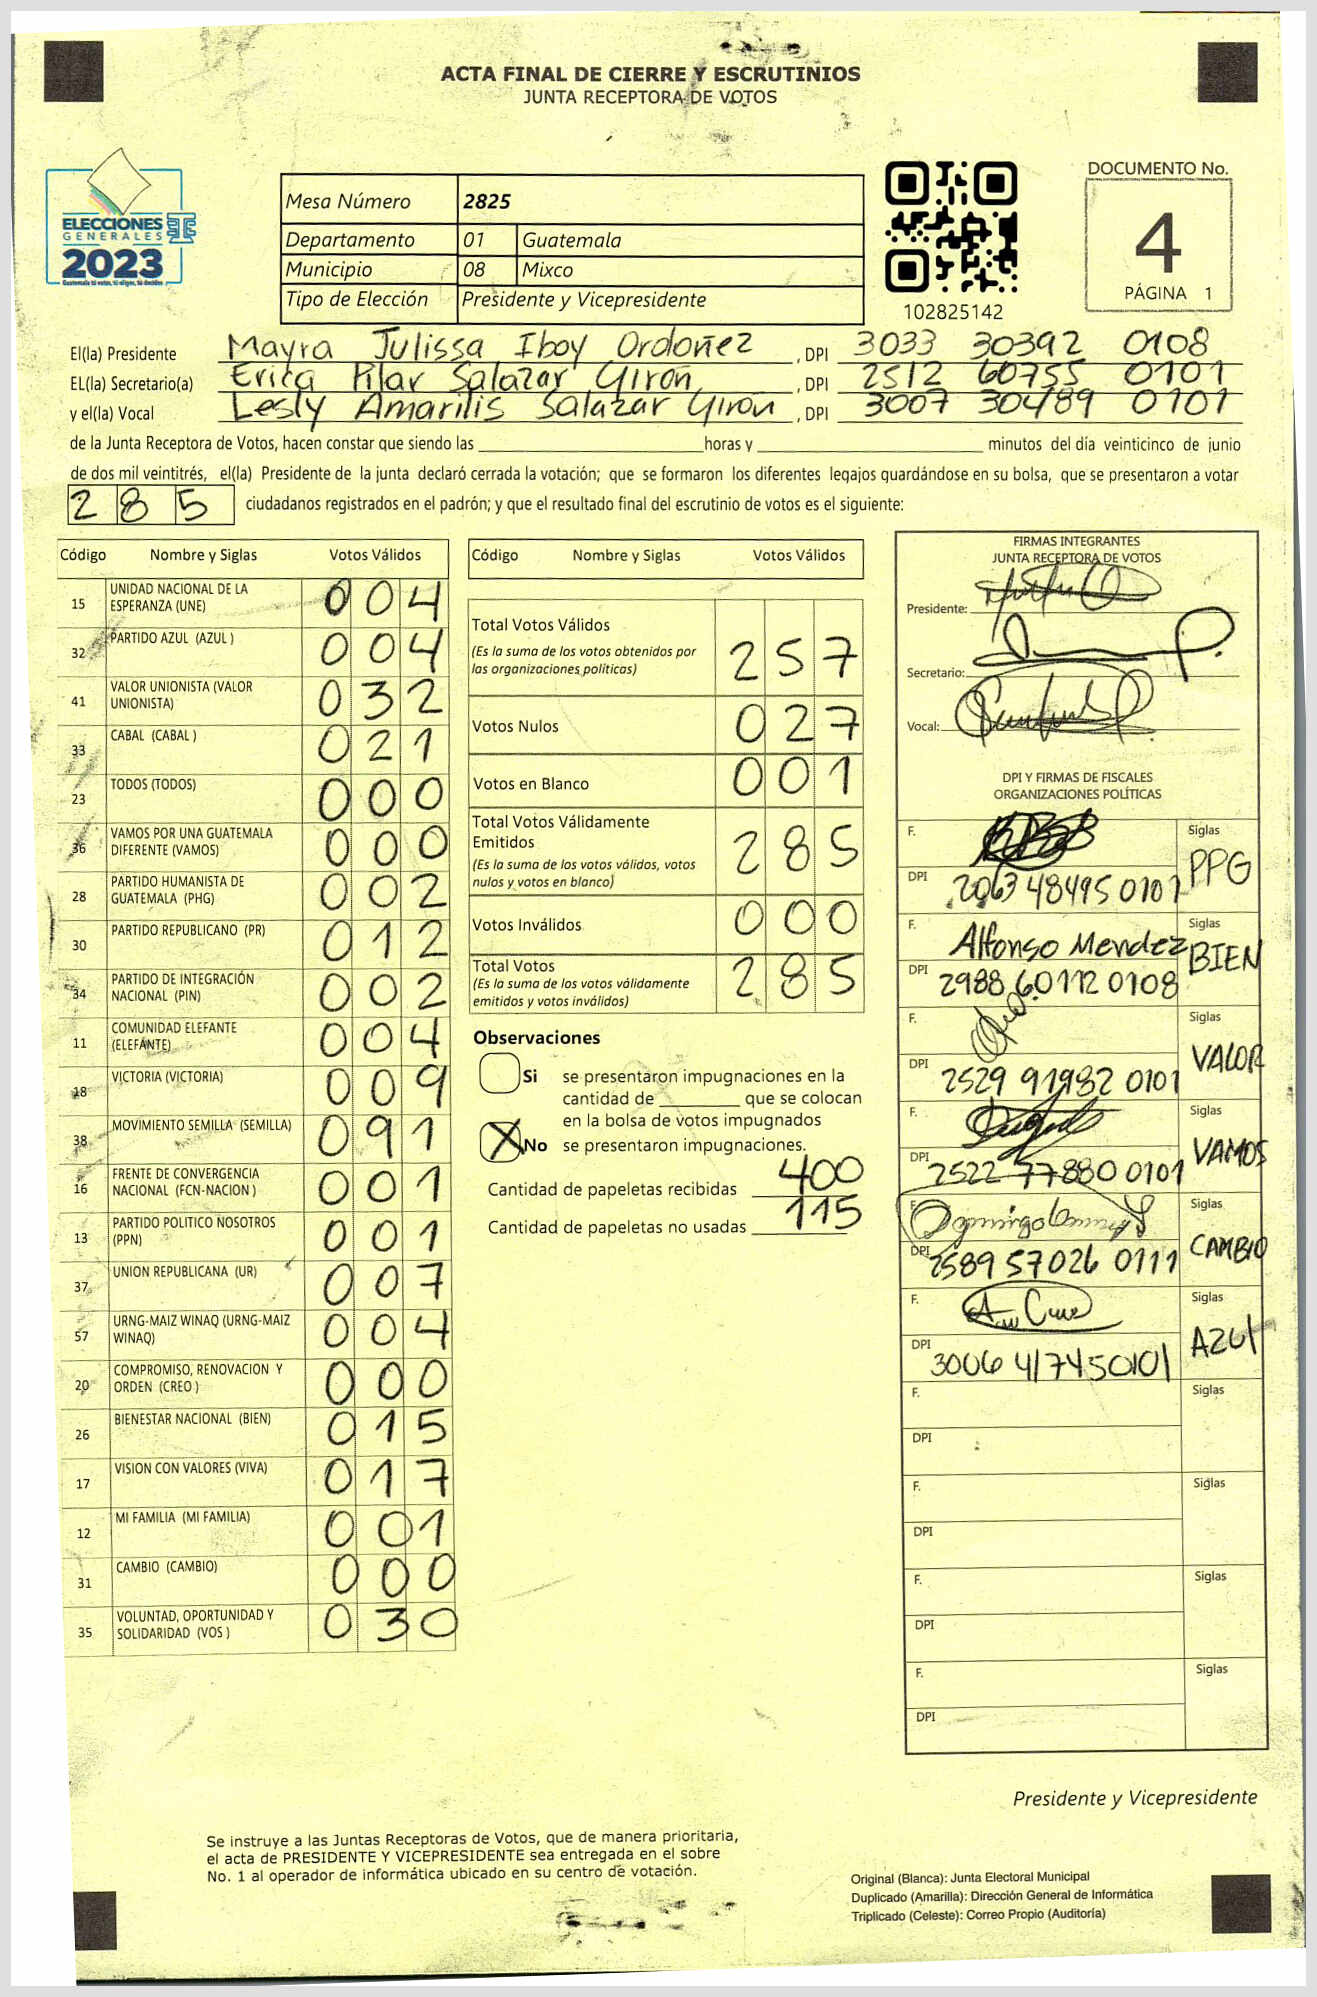 ACTA FINAL DE CIERRE Y ESCRUTINIOS
JUNTA RECEPTORA DE VOTOS
ELECCIONES
GENERALES
2023
Guatemala tú votas, tú eliges, tú decides
Mesa Número 2825
Departamento 01 Guatemala
Municipio 08 Mixco
Tipo de Elección Presidente y Vicepresidente
102825142
DOCUMENTO No.
4
PÁGINA 1
El(la) Presidente Mayra Julissa Iboy Ordoñez , DPI 3033 30392 0108
EL(la) Secretario(a) Erica Pilar Salazar Girón , DPI 2512 60755 0101
y el(la) Vocal Lesly Amarilis Salazar Girón , DPI 3007 30489 0101
de la Junta Receptora de Votos, hacen constar que siendo las horas y minutos del día veinticinco de junio
de dos mil veintitrés, el(la) Presidente de la junta declaró cerrada la votación; que se formaron los diferentes legajos guardándose en su bolsa, que se presentaron a votar
285 ciudadanos registrados en el padrón; y que el resultado final del escrutinio de votos es el siguiente:
Código Nombre y Siglas Votos Válidos
15 UNIDAD NACIONAL DE LA ESPERANZA (UNE) 004
32 PARTIDO AZUL (AZUL ) 004
41 VALOR UNIONISTA (VALOR UNIONISTA) 032
33 CABAL (CABAL ) 021
23 TODOS (TODOS) 000
36 VAMOS POR UNA GUATEMALA DIFERENTE (VAMOS) 000
28 PARTIDO HUMANISTA DE GUATEMALA (PHG) 002
30 PARTIDO REPUBLICANO (PR) 012
34 PARTIDO DE INTEGRACIÓN NACIONAL (PIN) 002
11 COMUNIDAD ELEFANTE (ELEFANTE) 004
18 VICTORIA (VICTORIA) 009
38 MOVIMIENTO SEMILLA (SEMILLA) 091
16 FRENTE DE CONVERGENCIA NACIONAL (FCN-NACION ) 001
13 PARTIDO POLITICO NOSOTROS (PPN) 001
37 UNION REPUBLICANA (UR) 007
57 URNG-MAIZ WINAQ (URNG-MAIZ WINAQ) 004
20 COMPROMISO, RENOVACION Y ORDEN (CREO ) 000
26 BIENESTAR NACIONAL (BIEN) 015
17 VISION CON VALORES (VIVA) 017
12 MI FAMILIA (MI FAMILIA) 001
31 CAMBIO (CAMBIO) 000
35 VOLUNTAD, OPORTUNIDAD Y SOLIDARIDAD (VOS ) 030
Código Nombre y Siglas Votos Válidos
Total Votos Válidos 257
(Es la suma de los votos obtenidos por
las organizaciones políticas)
Votos Nulos 027
Votos en Blanco 001
Total Votos Válidamente
Emitidos 285
(Es la suma de los votos válidos, votos
nulos y votos en blanco)
Votos Inválidos 000
Total Votos 285
(Es la suma de los votos válidamente
emitidos y votos inválidos)
Observaciones
Si se presentaron impugnaciones en la
cantidad de que se colocan
en la bolsa de votos impugnados
X No se presentaron impugnaciones.
Cantidad de papeletas recibidas 400
Cantidad de papeletas no usadas 115
FIRMAS INTEGRANTES
JUNTA RECEPTORA DE VOTOS
Presidente:
Secretario:
Vocal:
DPI Y FIRMAS DE FISCALES
ORGANIZACIONES POLÍTICAS
F. Siglas PPG
DPI 2063 48495 0101
F. Alfonso Mendez Siglas BIEN
DPI 2988 60112 0108
F. Siglas VALOR
DPI 2529 91982 0101
F. Siglas VAMOS
DPI 2522 77880 0101
F. Siglas CAMBIO
DPI 2589 57026 0111
F. Siglas AZUL
DPI 3006 41745 0101
F. Siglas
DPI
F. Siglas
DPI
F. Siglas
DPI
F. Siglas
DPI
Presidente y Vicepresidente
Se instruye a las Juntas Receptoras de Votos, que de manera prioritaria,
el acta de PRESIDENTE Y VICEPRESIDENTE sea entregada en el sobre
No. 1 al operador de informática ubicado en su centro de votación.
Original (Blanca): Junta Electoral Municipal
Duplicado (Amarilla): Dirección General de Informática
Triplicado (Celeste): Correo Propio (Auditoría)